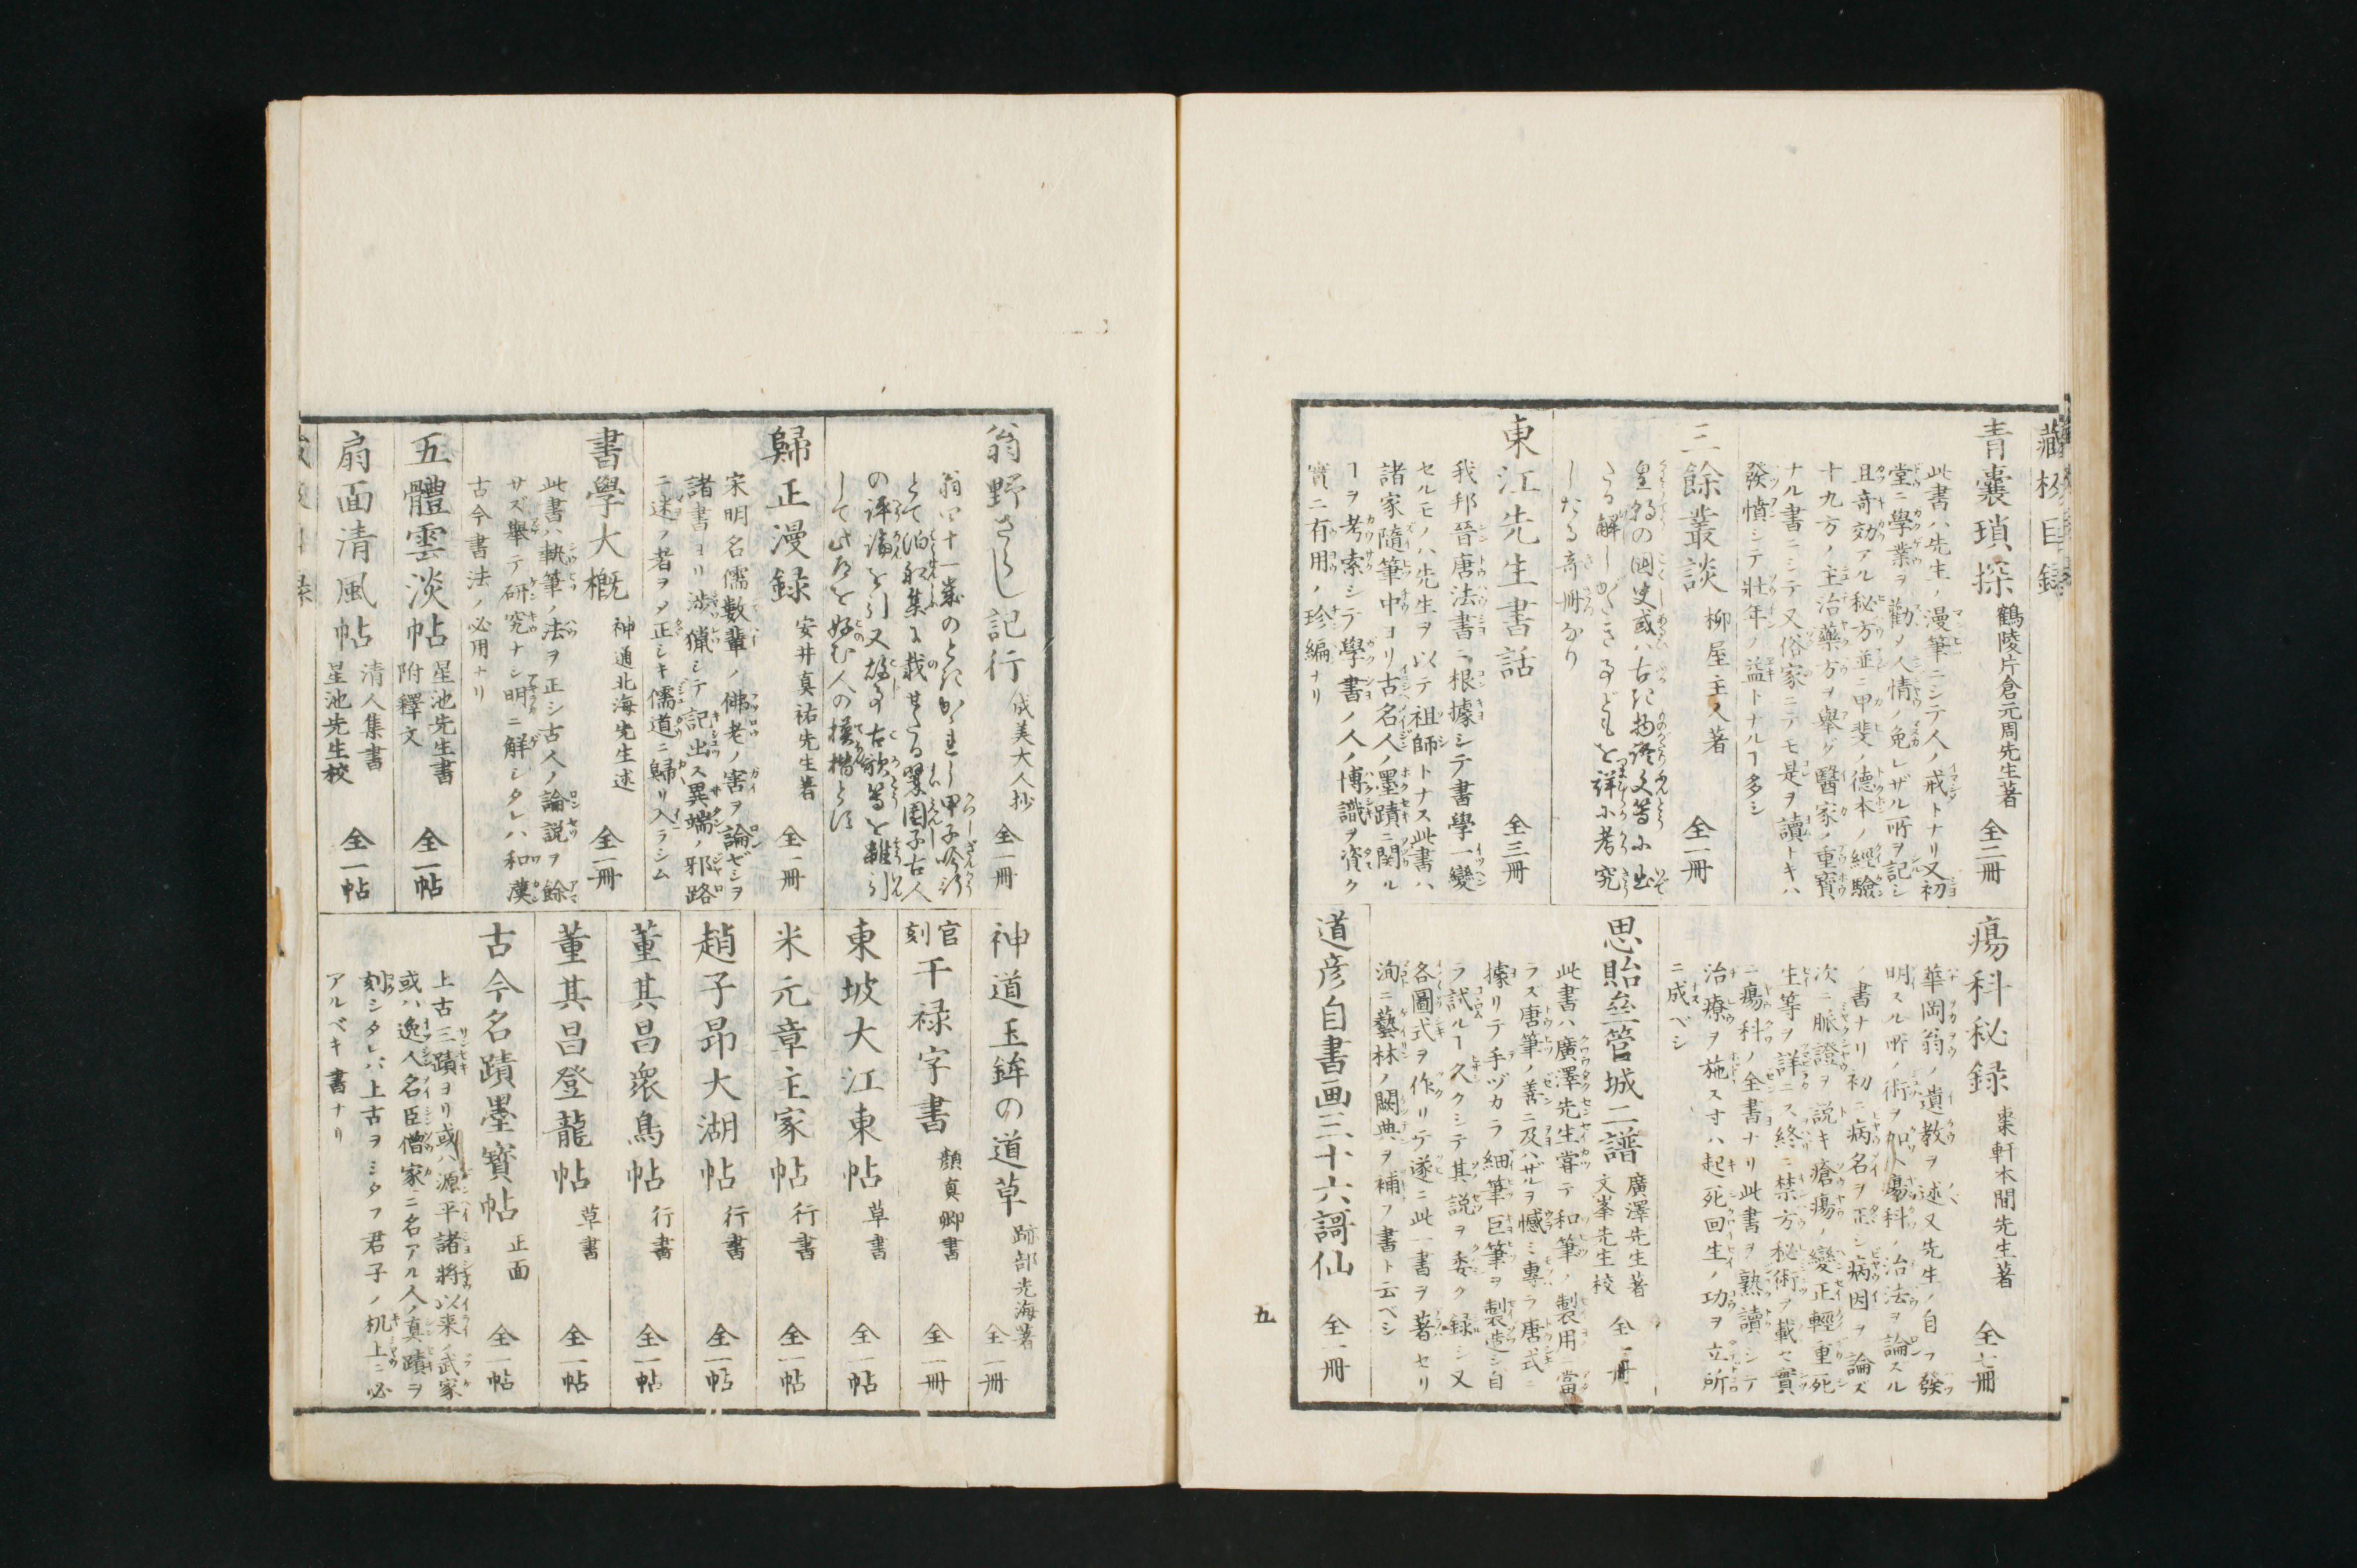 藏板目録
青囊瑣探 鶴陵片倉元周先生著 全二冊
此書ハ先生ノ漫筆ニシテ人ノ戒トナリ又初
堂ニ學業ヲ勸メ人情ノ免レザル所ヲ記シ
且奇効アル秘方並ニ甲斐ノ德本ノ經驗
十九方ノ主治藥方ヲ舉グ醫家ノ重寶
ナル書ニシテ又俗家ニテモ是ヲ讀トキハ
發憤シテ壯年ノ益トナルヿ多シ
三餘叢談 柳屋主人著 全一冊
皇朝の國史或ハ古き物語文等小出
たる解しがたき事どもを詳小考究
したる奇冊なり
東江先生書話 全三冊
我邦晉唐法書ニ根據シテ書學一變
セルモノハ先生ヲ以テ祖師トナス此書ハ
諸家隨筆中ヨリ古名人ノ墨蹟ニ関ル
ヿヲ考索シテ學書ノ人ノ博識ヲ資ク
實ニ有用ノ珍編ナリ
瘍科秘録 棗軒本間先生著 全七冊
華岡翁ノ遺教ヲ述又先生ノ自ラ發
明スル所ノ術ヲ加ヘ瘍科ノ治法ヲ論スル
ノ書ナリ初ニ病名ヲ正シ病因ヲ論ズ
次ニ脈證ヲ説キ瘡瘍ノ變正輕重死
生等ヲ詳ニス終ニ禁方秘術ヲ載セ實
ニ瘍科ノ全書ナリ此書ヲ熟讀シテ
治療ヲ施ス寸ハ起死回生ノ功ヲ立所
ニ成ベシ
思貽堂管城二譜 廣澤先生著 文峯先生校 全一冊
此書ハ廣澤先生嘗テ和筆ノ製用ニ當
ラズ唐筆ノ善ニ及ハザルヲ憾ミ專ラ唐式ニ
據リテ手ヅカラ細筆巨筆ヲ製造シ自
ラ試ルヿ久クシテ其説ヲ委ク録シ又
各圖式ヲ作リテ遂ニ此一書ヲ著セリ
洵ニ藝林ノ闕典ヲ補フ書ト云ベシ
道彦自書画三十六謌仙 全一冊
五
翁野さらし記行 成美大人抄 全一冊
翁四十一歳のとき かゝれし甲子吟行
とて泊船集に載せたる翠園子古人
の評論を引又故事古歌等を雖引
して此道を好む人の模楷とす
歸正漫録 安井真祐先生著 全一冊
宋明名儒數輩ノ佛老ノ害ヲ論ゼシヲ
諸書ヨリ渉獵シテ記出ス異端ノ邪路
ニ迷ノ者ヲメ正シキ儒道ニ歸リ入ラシム
書學大概 神通北海先生述 全一冊
此書ハ執筆ノ法ヲ正シ古人ノ論説ヲ餘
サズ舉テ研究ナシ明ニ解シタレハ和漢
古今書法ノ必用ナリ
五體雲淡帖 星池先生書 附釋文 全一帖
扇面清風帖 清人集書 星池先生校 全一帖
神道玉鉾の道草 跡部光海著 全一冊
官刻 干禄字書 顔真卿書 全一冊
東坡大江東帖 草書 全一帖
米元章主家帖 行書 全一帖
趙子昂大湖帖 行書 全一帖
董其昌衆鳥帖 行書 全一帖
董其昌登龍帖 草書 全一帖
古今名蹟墨寶帖 正面 全一帖
上古三蹟ヨリ或ハ源平諸將以来ノ武家
或ハ逸人名臣僧家ニ名アル人ノ真蹟ヲ
刻シタレバ上古ヲシタフ君子ノ机上ニ必
アルベキ書ナリ